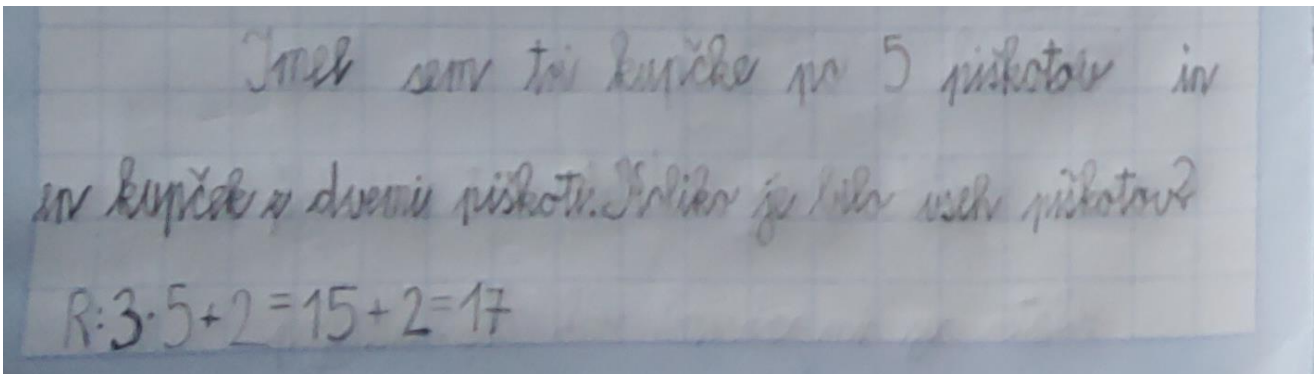 Imel sem tri kupčke po 5 piškotov in
en kupček z dvemi piškoti. Koliko je bilo vseh piškotov?
R: 3·5+2=15+2=17